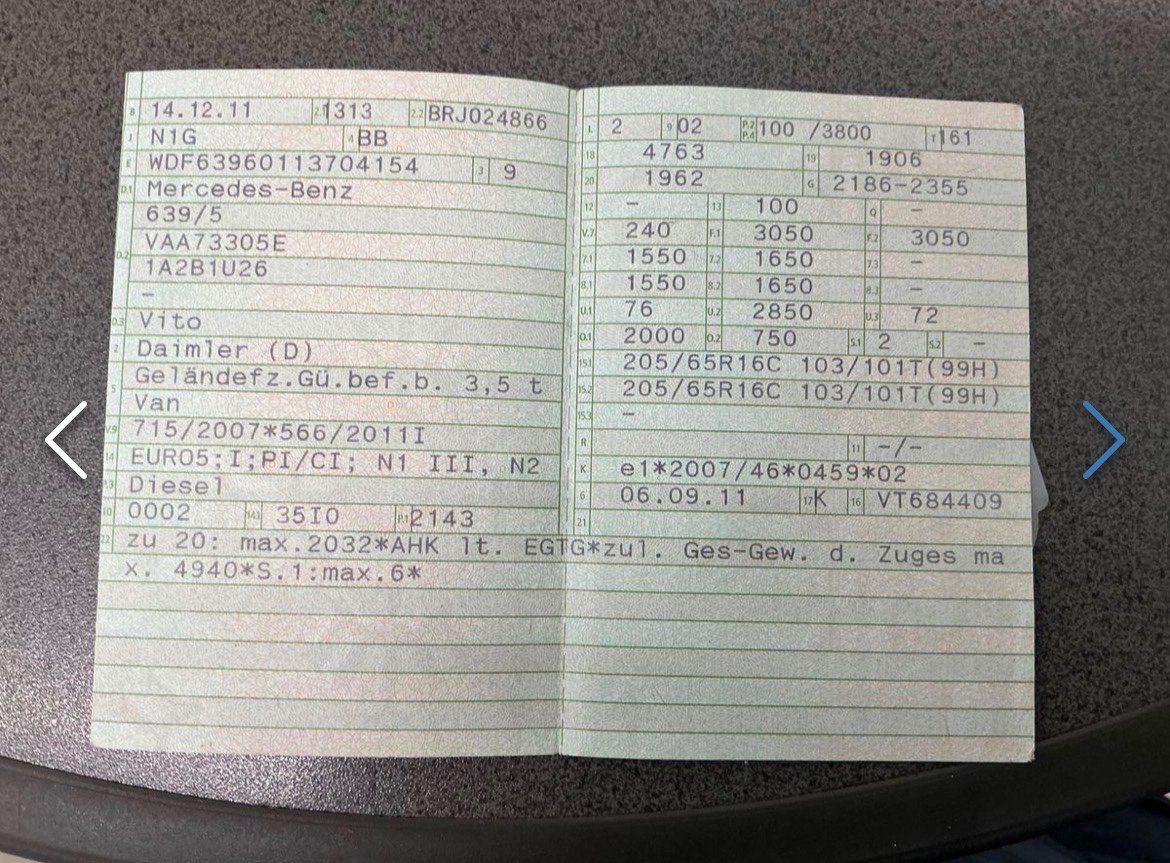 B 14.12.11 2.1 1313 2.2 BRJ024866
J N1G 4 BB
E WDF63960113704154 3 9
D.1 Mercedes-Benz
639/5
D.2 VAA73305E
1A2B1U26
–
D.3 Vito
2 Daimler (D)
5 Geländefz.Gü.bef.b. 3,5 t
Van
V.9 715/2007*566/2011I
14 EURO5;I;PI/CI; N1 III, N2
P.3 Diesel
10 0002 14.1 35I0 P.1 2143
L 2 9 02 P.2 P.4 100 /3800 T 161
18 4763 19 1906
20 1962 G 2186-2355
12 – 13 100 Q –
V.7 240 F.1 3050 F.2 3050
7.1 1550 7.2 1650 7.3 –
8.1 1550 8.2 1650 8.3 –
U.1 76 U.2 2850 U.3 72
O.1 2000 O.2 750 S.1 2 S.2 –
15.1 205/65R16C 103/101T(99H)
15.2 205/65R16C 103/101T(99H)
15.3 –
R 11 –/–
K e1*2007/46*0459*02
6 06.09.11 17 K 16 VT684409
21
22 zu 20: max.2032*AHK lt. EGTG*zul. Ges-Gew. d. Zuges ma
x. 4940*S.1:max.6*